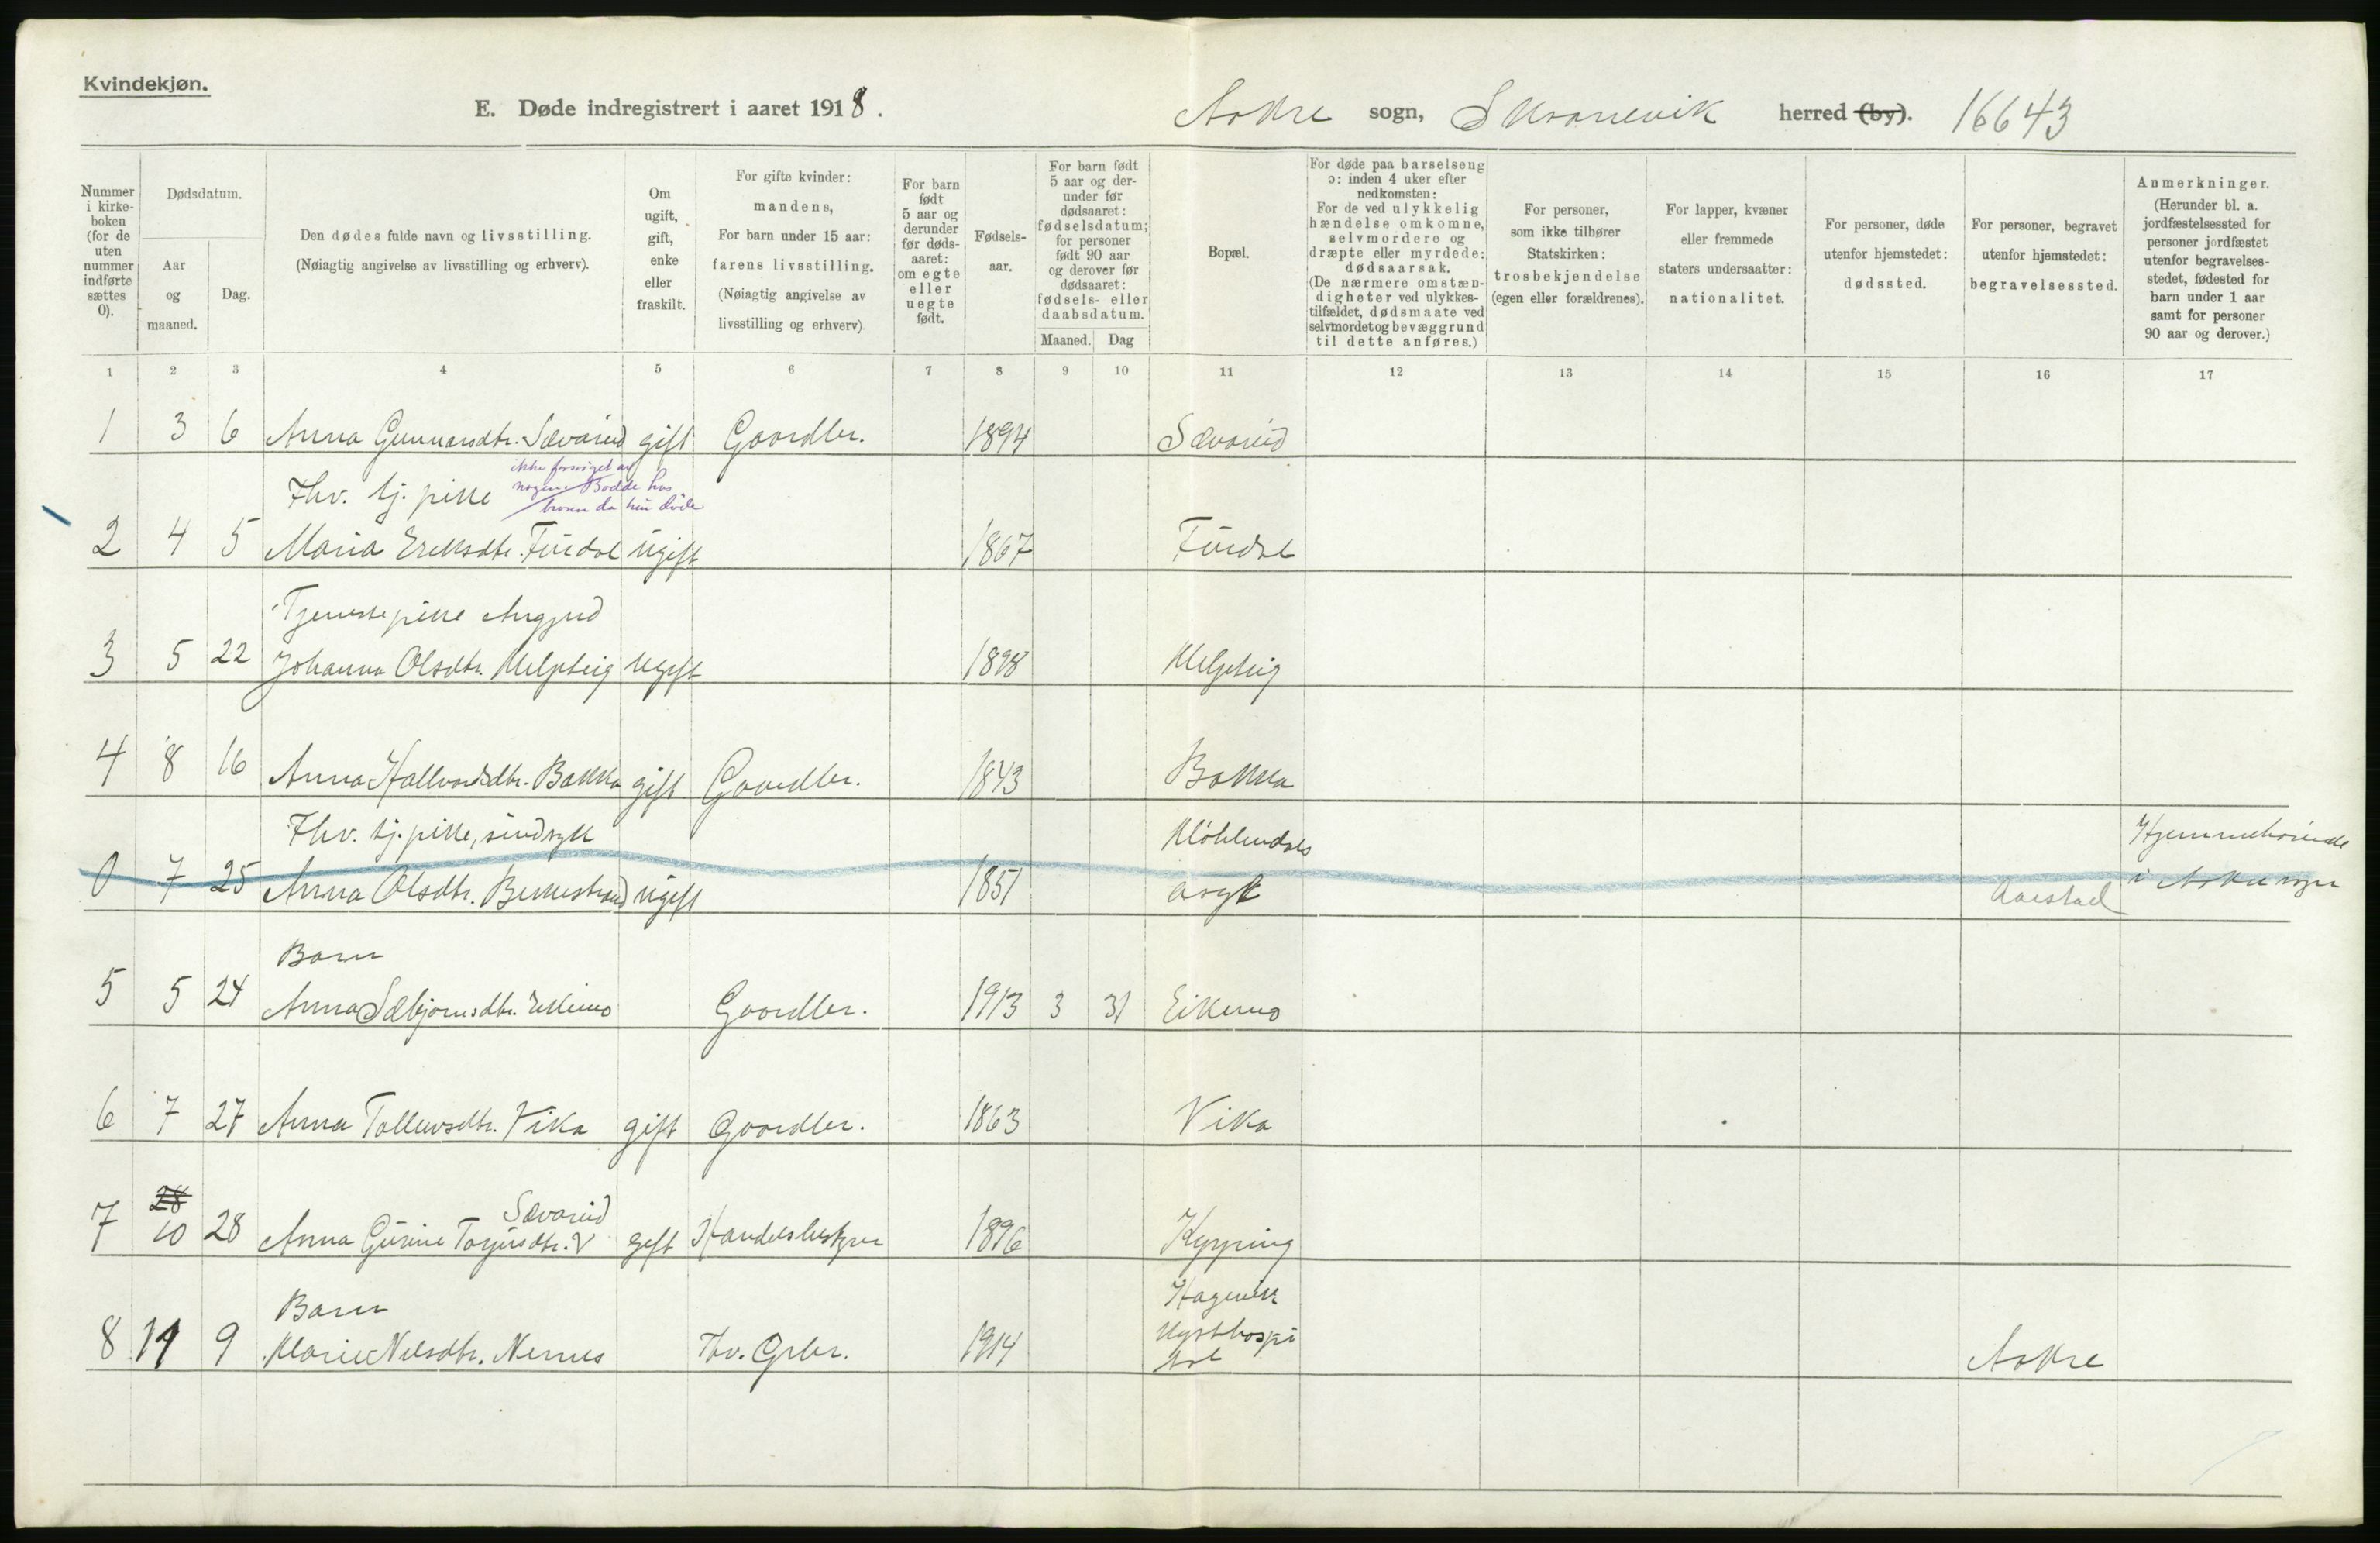 Kvindekjøn.
E. Døde indregistrert i aaret 1918.
Aakre sogn, Skaanevik herred (by). 16643
Nummer i kirkeboken (for de uten nummer indførte sættes 0).
Dødsdatum.
Aar og maaned.
Dag.
Den dødes fulde navn og livsstilling.
(Nøiagtig angivelse av livsstilling og erhverv).
Om ugift, gift, enke eller fraskilt.
For gifte kvinder: mandens,
For barn under 15 aar: farens livsstilling.
(Nøiagtig angivelse av livsstilling og erhverv).
For barn født 5 aar og derunder før dødsaaret: om egte eller uegte født.
Fødselsaar.
For barn født 5 aar og derunder før dødsaaret: fødselsdatum; for personer født 90 aar og derover før dødsaaret: fødsels- eller daabsdatum.
Maaned. Dag
Bopæl.
For døde paa barselseng ɔ: inden 4 uker efter nedkomsten:
For de ved ulykkelig hændelse omkomne, selvmordere og dræpte eller myrdede: dødsaarsak.
(De nærmere omstændigheter ved ulykkestilfældet, dødsmaate ved selvmordet og bevæggrund til dette anføres.)
For personer, som ikke tilhører Statskirken: trosbekjendelse (egen eller forældrenes).
For lapper, kvæner eller fremmede staters undersaatter: nationalitet.
For personer, døde utenfor hjemstedet: dødssted.
For personer, begravet utenfor hjemstedet: begravelsessted.
Anmerkninger.
(Herunder bl. a. jordfæstelsessted for personer jordfæstet utenfor begravelsesstedet, fødested for barn under 1 aar samt for personer 90 aar og derover.)
1 2 3 4 5 6 7 8 9 10 11 12 13 14 15 16 17
1 3 6 Anna Gunnarsdtr. Sævareid gift Gaardbr. 1894 Sævareid
ikke forsörget av
nogen. Bodde hos
broren da hun döde
Fhv. tj. pike
2 4 5 Maria Eriksdtr. Fürdal ugift 1867 Fürdal
Tjenestepike
3 5 22 Johanna Olsdtr. ugift 1898
4 8 16 Anna Hallvardsdtr. Bakka gift Gaardbr. 1843 Bakka
Fhv. tj. pike, sindsyk Hjemmehörende
0 7 25 Anna Olsdtr. ugift 1851 asyl Aarstad i Aakre sogn
Barn
5 5 24 Anna Sæbjörnsdtr. Eikemo Gaardbr. 1913 3 31 Eikemo
6 7 27 Anna Tollevsdtr. Vika gift Gaardbr. 1863 Vika
28 Sævareid
7 10 28 Anna Gürine Torjusdtr. V gift Handelsbestyrer 1896 Kypping
Barn Hagevik
8 11 9 Marie Nilsdtr. Nernes Fhv. Grbr. 1914 Kysthospi
tal Aakre